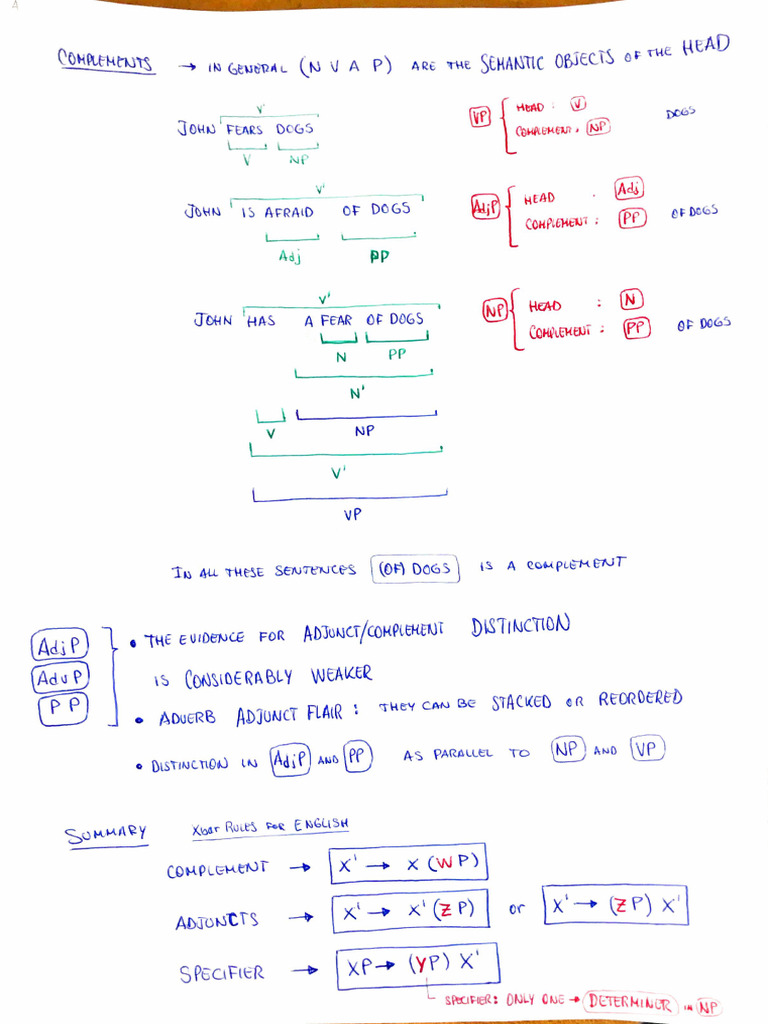 COMPLEMENTS → IN GENERAL (N V A P) ARE THE SEMANTIC OBJECTS OF THE HEAD
V'
JOHN FEARS DOGS
V NP
VP { HEAD : V
COMPLEMENT : NP DOGS
V'
JOHN IS AFRAID OF DOGS
Adj PP
AdjP { HEAD : Adj
COMPLEMENT : PP OF DOGS
V'
JOHN HAS A FEAR OF DOGS
N PP
N'
V NP
V'
VP
NP { HEAD : N
COMPLEMENT : PP OF DOGS
IN ALL THESE SENTENCES (OF) DOGS IS A COMPLEMENT
AdjP
AdvP
PP
• THE EVIDENCE FOR ADJUNCT/COMPLEMENT DISTINCTION
IS CONSIDERABLY WEAKER
• ADVERB ADJUNCT FLAIR : THEY CAN BE STACKED OR REORDERED
• DISTINCTION IN AdjP AND PP AS PARALLEL TO NP AND VP
SUMMARY Xbar RULES FOR ENGLISH
COMPLEMENT → X' → X (WP)
ADJUNCTS → X' → X' (ZP) or X' → (ZP) X'
SPECIFIER → XP → (YP) X'
SPECIFIER: ONLY ONE → DETERMINER IN NP